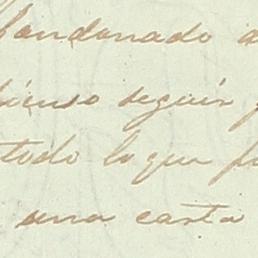 abandonado a
pienso seguir
todo lo que
una carta